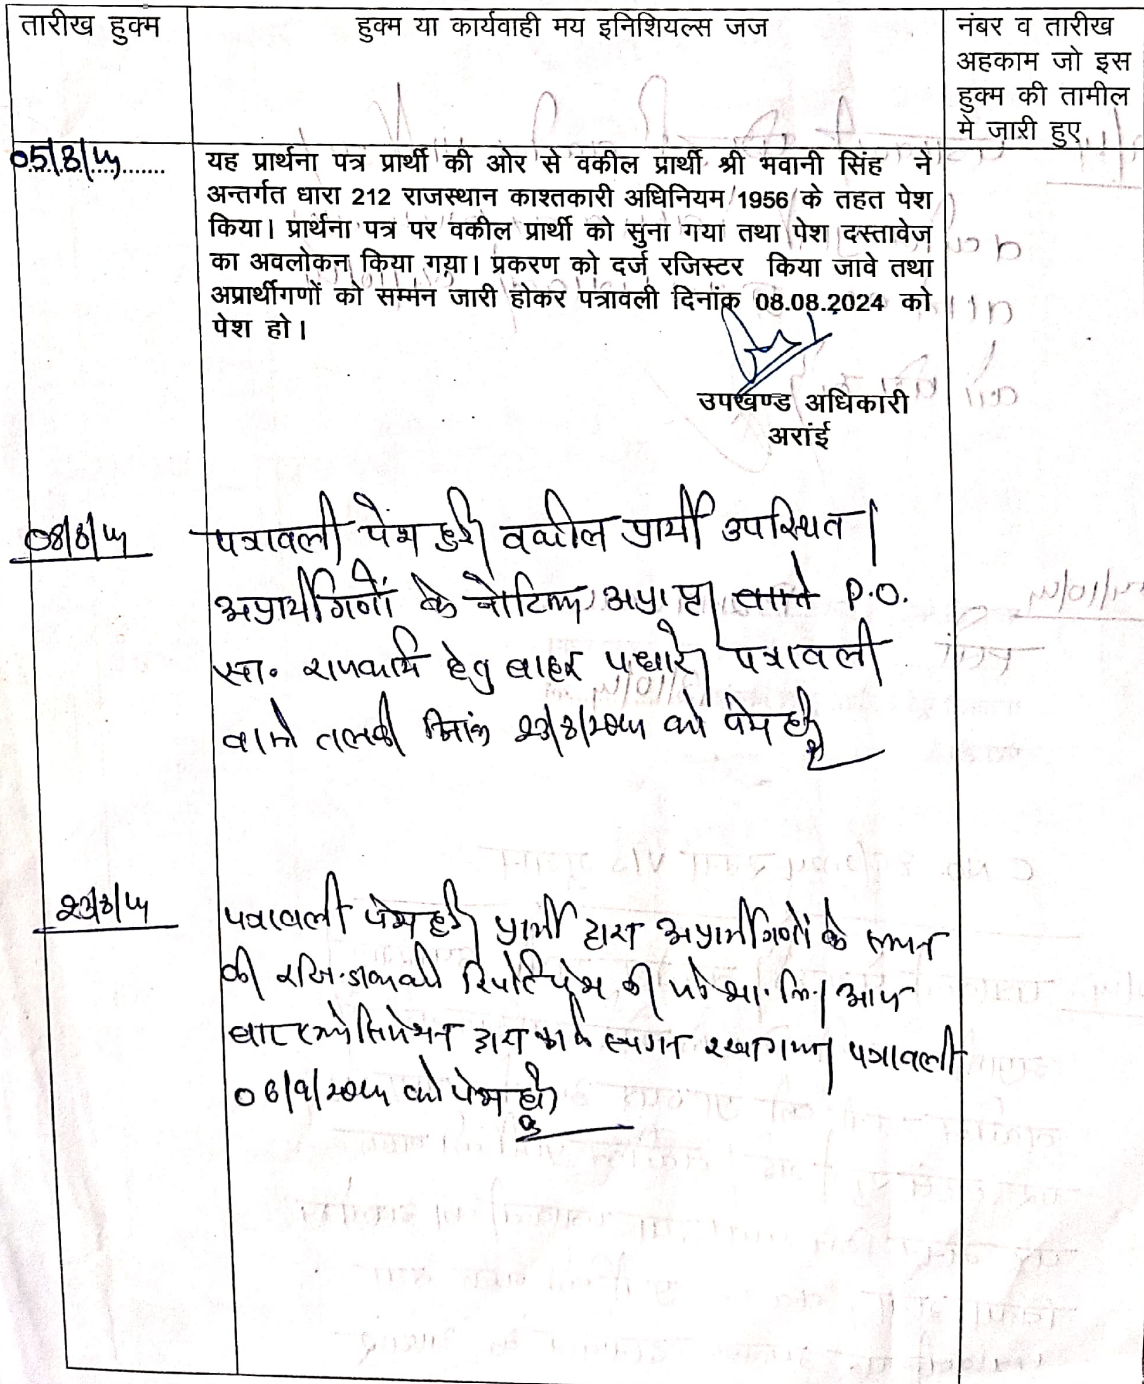 तारीख हुक्म
हुक्म या कार्यवाही मय इनिशियल्स जज
नंबर व तारीख
अहकाम जो इस
हुक्म की तामील
मे जारी हुए
05/8/24
यह प्रार्थना पत्र प्रार्थी की ओर से वकील प्रार्थी श्री भवानी सिंह ने
अन्तर्गत धारा 212 राजस्थान काश्तकारी अधिनियम 1956 के तहत पेश
किया। प्रार्थना पत्र पर वकील प्रार्थी को सुना गया तथा पेश दस्तावेज
का अवलोकन किया गया। प्रकरण को दर्ज रजिस्टर किया जावे तथा
अप्रार्थीगणों को सम्मन जारी होकर पत्रावली दिनांक 08.08.2024 को
पेश हो।
उपखण्ड अधिकारी
अरांई
08/8/24
पत्रावली पेश हुई। वकील प्रार्थी उपस्थित।
अप्रार्थीगणों के नोटिस अप्राप्त। P.O.
सा. राजकार्य हेतु बाहर पधारे। पत्रावली
वास्ते तलबी दिनांक 23/8/2024 को पेश हो।
23/8/24
पत्रावली पेश हुई। प्रार्थी द्वारा अप्रार्थीगणों के सम्मन
की रजि. डाक की रिपोर्ट पेश की। आज
बार एसोसिएशन द्वारा कार्य स्थगन रखा गया। पत्रावली
06/9/2024 को पेश हो।